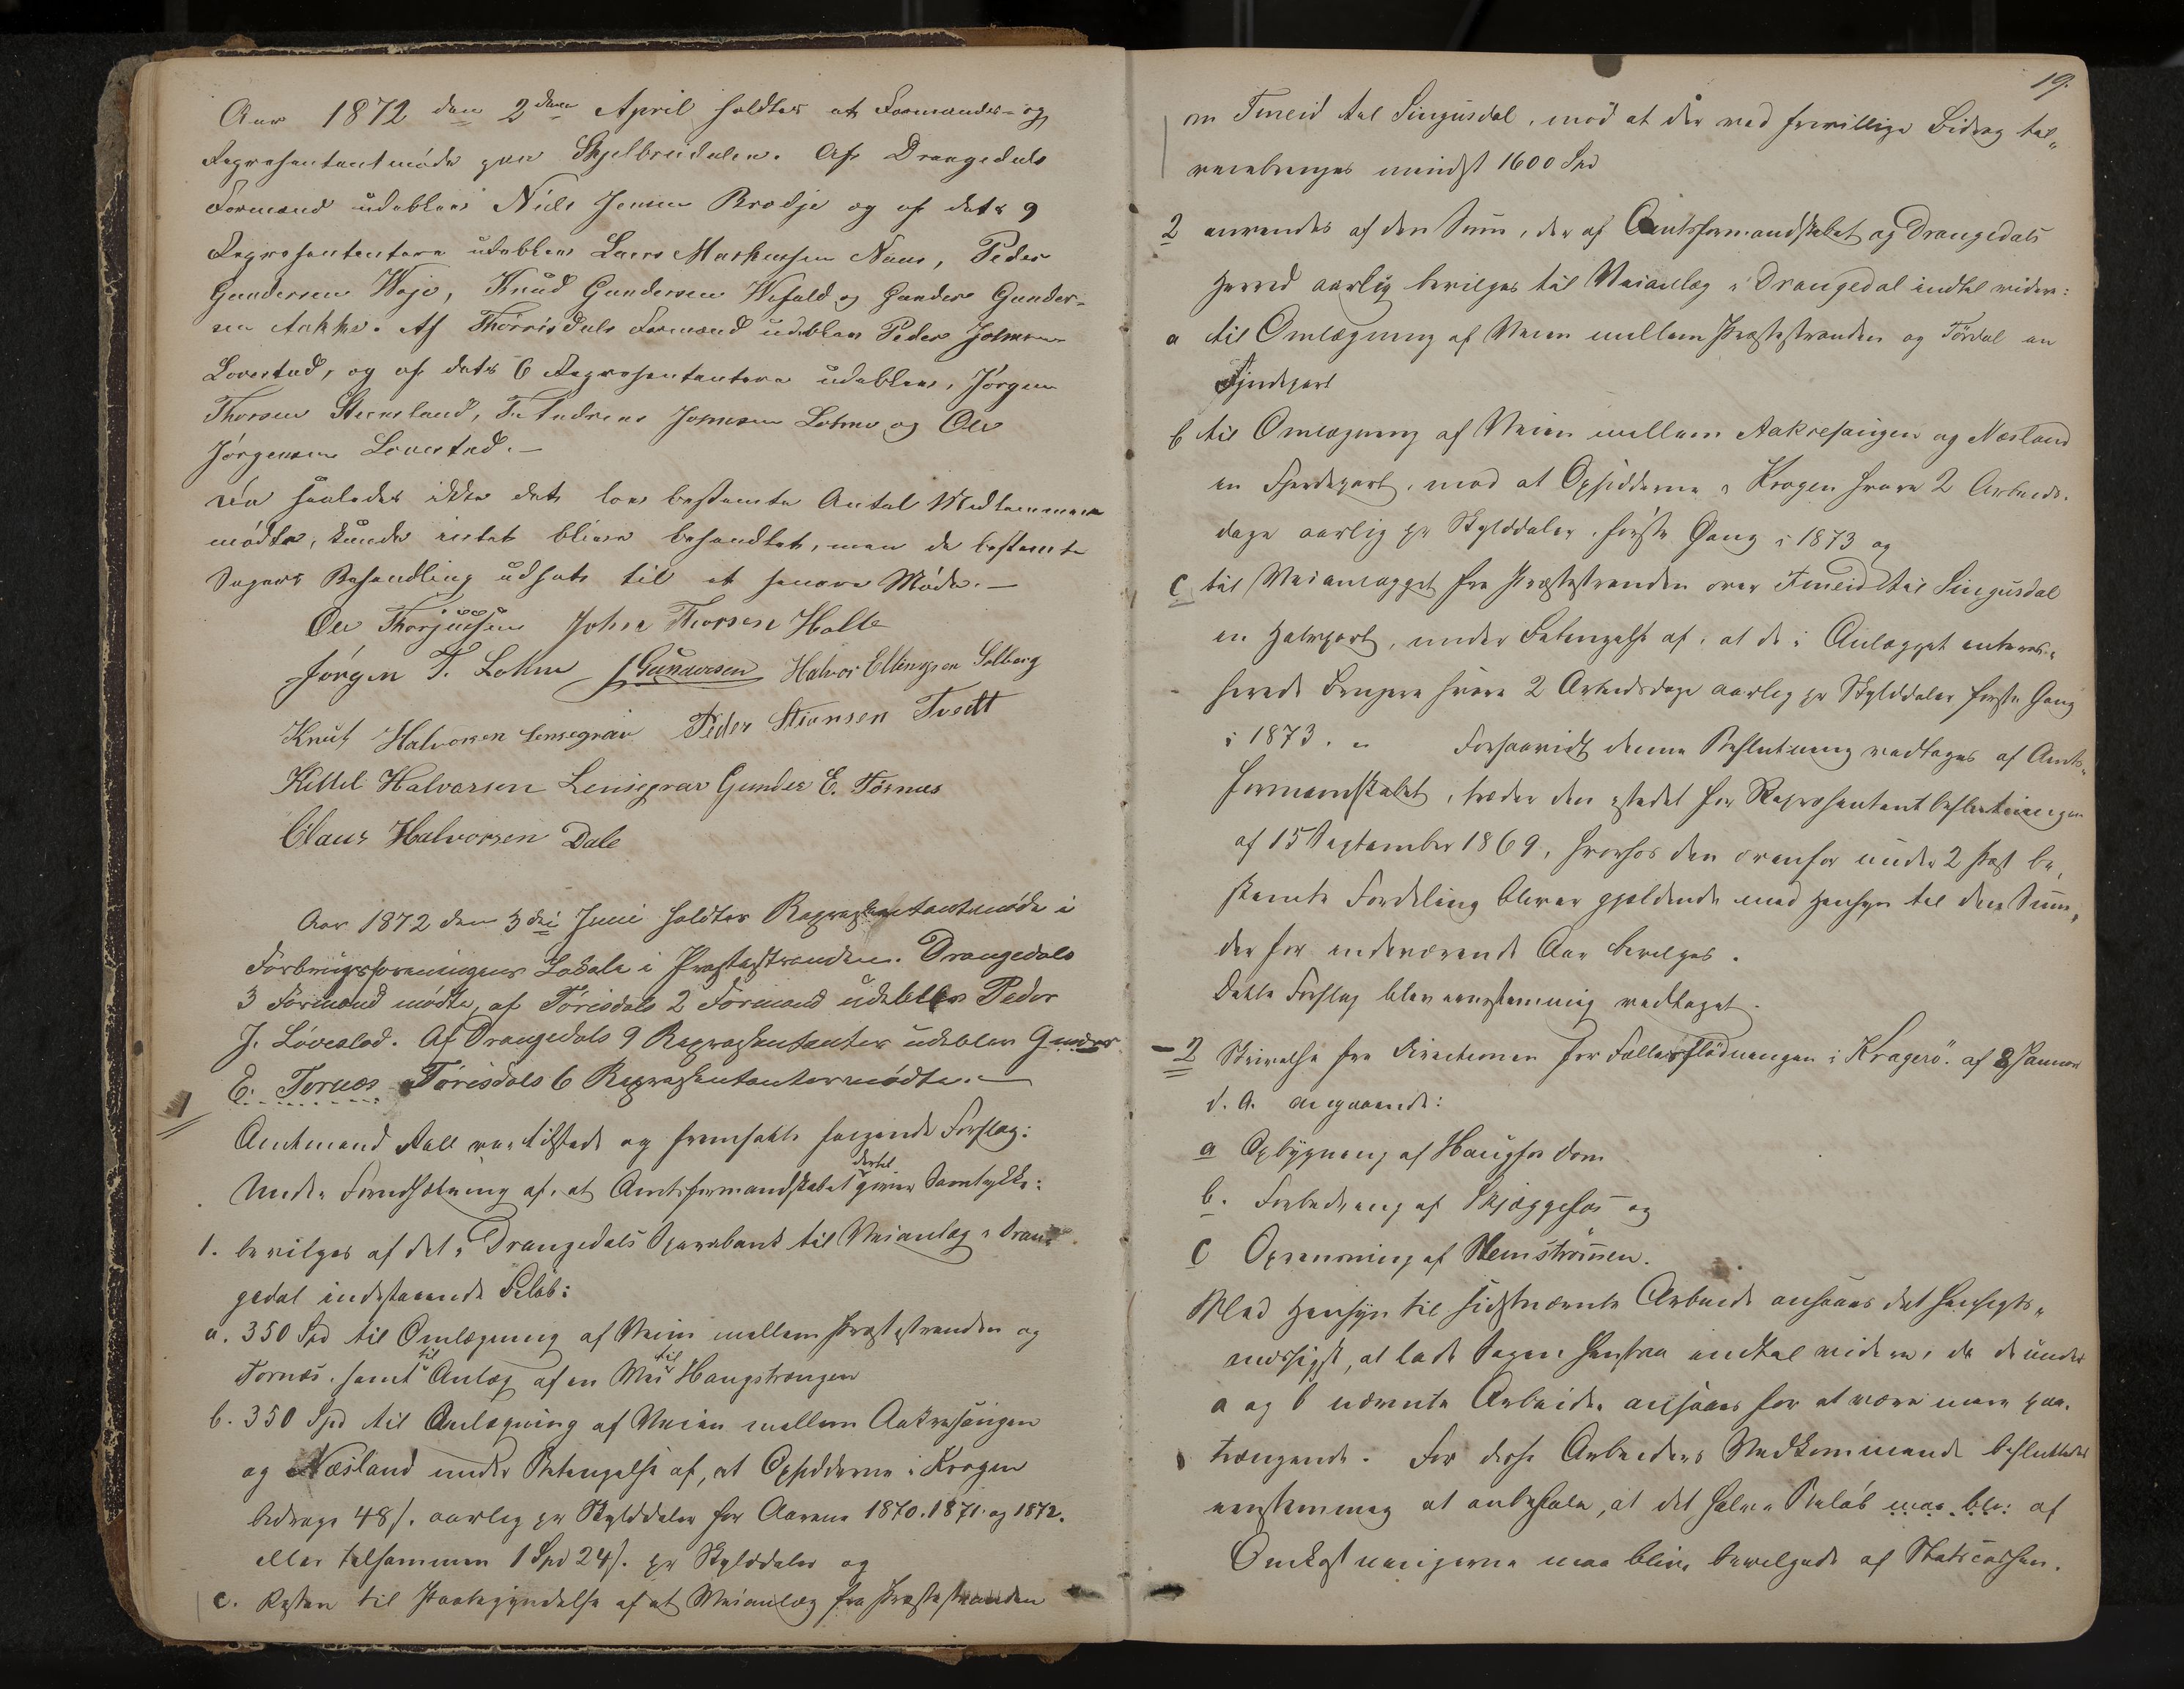 Aar 1872 den 2den April holdtes et Formands- og
Representantmøde paa Skjelbreidalen. Af Drangedals
Formænd udeblev Niels Jensen Brødsje og af dets 9
Representantere udeblev Laers Markussen Naas, Peder
Gundersen Woje, Knud Gundersen Wefald og Gunder Gunder-
sen Aakre. Af Thørrisdals Formænd udeblev Peder Johnsen
Lovestad, og af dets 6 Representantere udeblev, Jørgen
Thorsen Steensland, Andreas Johnsen Lohne og Ole
Jørgensen Lovestad. —
Da saaledes ikke det lov bestemte Antal Medlemmer
mødte, kunde intet blive behandlet, men de bestemte
Sagers Behandling udsat til et senere Møde. —
Ole Thorjussen John Thorsen Holte
Jørgen T. Lohne J Gundersen Halvor Ellingsen Solberg
Knut Halvorsen Lensegrav Peder Stiansen Tvedt
Kittil Halvorsen Lensegrav Gunder E. Tørnes
Claus Halvorsen Dale
Aar 1872 den 3die Juni holdtes Repræsentantmøde i
Forbrugsforeningens Lokale i Præstestranden. Drangedals
3 Formænd mødte, af Tørisdals 2 Formænd udeblev Peder
J. Lövestad. Af Drangedals 9 Repræsentanter udeblev Gunder
E. Tornes Tørisdals 6 Repræsentanter mødte. —
1
Amtmand Aall var tilstede og fremsatte følgende Forslag:
Under Forudsætning af, at Amtsformandskabet dertil giver Samtykke:
1. bevilges af det i Drangedals Sparebank til Veianlæg i Dran-
gedal indestaaende Beløb:
a. 350 Spd til Omlægning af Veien mellem Præstestranden og
Tornæs, samt til Anlæg af en Vei til Haugstrængen
b. 350 Spd til Omlægning af Veien mellem Aakrefangen
og Næsland under Betingelse af, at Opsidderne i Krogen
bidrage 48 s. aarlig pr Skylddaler for Aarene 1870. 1871. og 1872.
eller tilsammen 1 Spd 24 s. pr Skylddaler og
c. Resten til Paabegyndelse af et Veianlæg fra Præstestranden
19.
om Tmeid til Singusdal, mod at der ved frivillige Bidrag til-
veiebringes mindst 1600 Spd
2 anvendes af den Sum, der af Amtsformandskabet og Drangedals
Herred aarlig bevilges til Veianlæg i Drangedal indtil videre:
a til Omlægning af Veien mellem Præstestranden og Tørdal en
Fjerdepart
b til Omlægning af Veien mellem Aakrefangen og Næsland
en Fjerdepart, mod at Opsidderne i Krogen svare 2 Arbeids-
dage aarlig pr Skylddaler, første Gang i 1873 og
c til Veianlægget fra Præstestranden over Tmeid til Singusdal
en Halvpart, under Betingelse af, at de i Anlægget interes-
serede Brugere svare 2 Arbeidsdage aarlig pr Skylddaler første Gang
i 1873. — Forsaavidt denne Beslutning vedtages af Amts-
formandskabet, træder den istedet for Repræsentantbeslutningen
af 15 September 1869, hvorhos den ovenfor under 2 Post be-
stemte Fordeling bliver gjældende med Hensyn til den Sum,
der for indeværende Aar bevilges.
Dette Forslag blev eenstemmig vedtaget.
2 Skrivelse fra Directionen for Fællesflødningen i Kragerö af 8 Januar
d. A. angaaende:
a Opbygning af Haugfos Dam
b. Forbedring af Skjæggefos og
c Oprensning af Stemströmmen.
Med Hensyn til sidstnævnte Arbeide ansaaes det hensigts-
mæssigst, at lade Sagen henstaa indtil videre, da de under
a og b nævnte Arbeider ansaaes for at være mere paa-
trængende. For disse Arbeiders Vedkommende besluttedes
eenstemmig at anbefale, at det halve Beløb maa bli: af
Omkostningerne maa blive bevilgede af Statscassen.